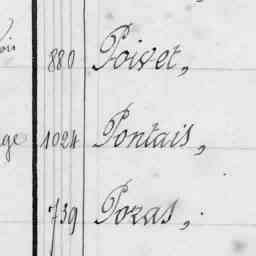 880 Poivet,
1024 Pontais,
739 Pozas,